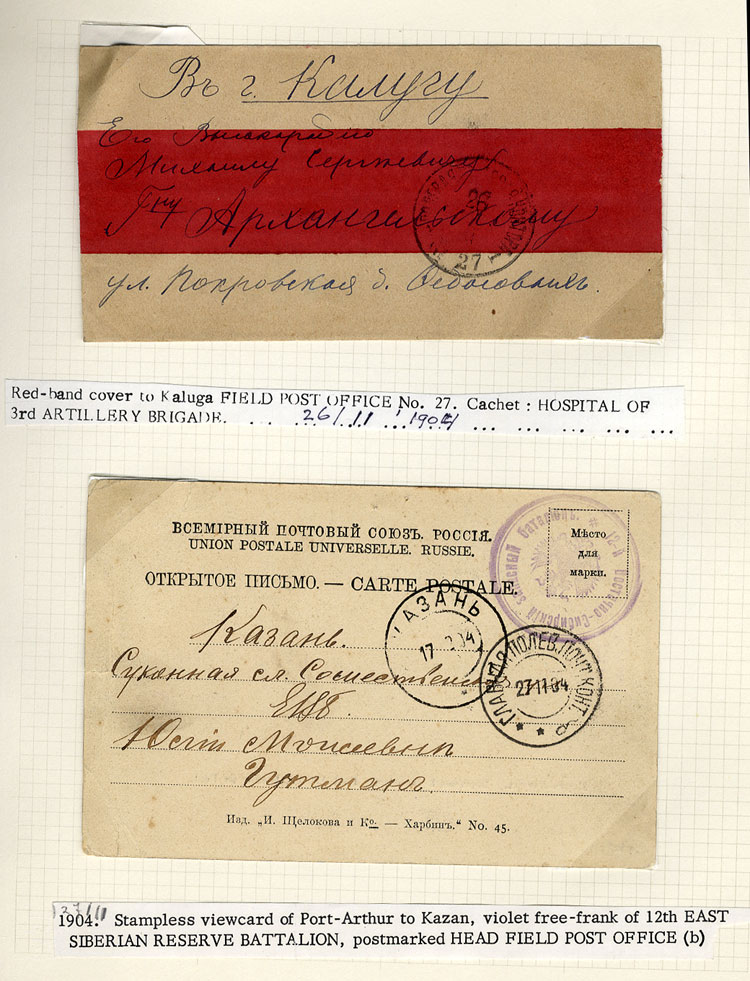 Въ г. Калугу
Его Высокородію
Михаилу Сергѣевичу
Гну Архангельскому
26
27
ул. Покровская д.
Red-band cover to Kaluga FIELD POST OFFICE No. 27. Cachet : HOSPITAL OF
3rd ARTILLERY BRIGADE. 26/11 1904
ВСЕМІРНЫЙ ПОЧТОВЫЙ СОЮЗЪ. РОССІЯ.
UNION POSTALE UNIVERSELLE. RUSSIE.
ОТКРЫТОЕ ПИСЬМО. — CARTE POSTALE.
12-й Восточно-Сибирскій запасный баталіонъ.
Мѣсто
для
марки.
КАЗАНЬ
17 04
ГЛАВНАЯ ПОЛЕВ. ПОЧТ. КОНТ.
27 11 04
Казань.
Суконная сл.
ЕВБ.
Моисеевнѣ
Гутманъ.
Изд. „И. Щелокова и Ко. — Харбинъ." No. 45.
27/11
1904. Stampless viewcard of Port-Arthur to Kazan, violet free-frank of 12th EAST
SIBERIAN RESERVE BATTALION, postmarked HEAD FIELD POST OFFICE (b)